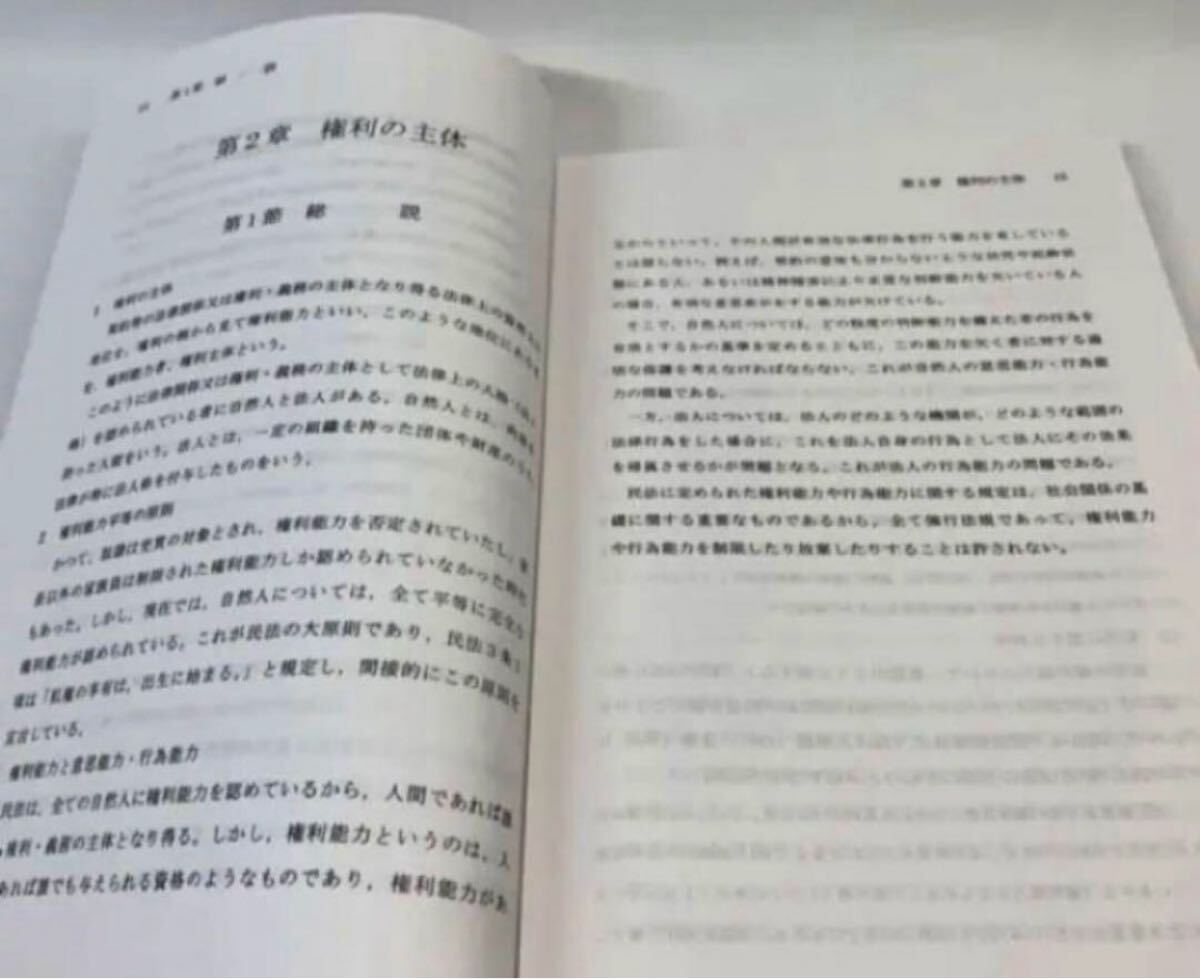 第2章 権利の主体
第1節 総 説
1 権利の主体
契約等の法律関係又は権利・義務の主体となり得る法律上の資格又は
地位を、権利の面から見て権利能力といい、このような地位にある者
を、権利能力者、権利主体という。
このように法律関係又は権利・義務の主体として法律上の人格（法
格）を認められている者に自然人と法人がある。自然人とは、
った人間をいう。法人とは、一定の組織を持った団体や財産のうち、
法律が特に法人格を付与したものをいう。
2 権利能力平等の原則
かつて、奴隷は売買の対象とされ、権利能力を否定されていたし、
長以外の家族員は制限された権利能力しか認められていなかった時代
もあった。しかし、現在では、自然人については、全て平等に完全な
権利能力が認められている。これが民法の大原則であり、民法3条1
項は「私権の享有は、出生に始まる。」と規定し、間接的にこの原則を
宣言している。
権利能力と意思能力・行為能力
民法は、全ての自然人に権利能力を認めているから、人間であれば誰
権利・義務の主体となり得る。しかし、権利能力というのは、人
あれば誰でも与えられる資格のようなものであり、権利能力があ
第2章 権利の主体
るからといって、その人間が有効な法律行為を行う能力を有している
とは限らない。例えば、契約の意味も分からないような幼児や泥酔状
態にある人、あるいは精神障害により正常な判断能力を欠いている人
の場合、有効な意思表示をする能力が欠けている。
そこで、自然人については、どの程度の判断能力を備えた者の行為を
有効とするかの基準を定めるとともに、この能力を欠く者に対する適
切な保護を考えなければならない。これが自然人の意思能力・行為能
力の問題である。
一方、法人については、法人のどのような機関が、どのような範囲の
法律行為をした場合に、これを法人自身の行為として法人にその効果
を帰属させるかが問題となる。これが法人の行為能力の問題である。
民法に定められた権利能力や行為能力に関する規定は、社会関係の基
礎に関する重要なものであるから、全て強行法規であって、権利能力
や行為能力を制限したり放棄したりすることは許されない。